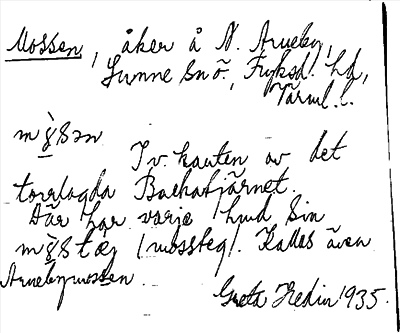 Mossen, åker å N. Arneby,
Sunne sn ö., Fryksd. hd,
Värml. l.
mø̀sən
I v. kanten av det
torrlagda Backatjärnet.
Där har varje hmd sin
mø̀stæg (mossteg). Kallas även
Arnebymossen.
Greta Hedin 1935.